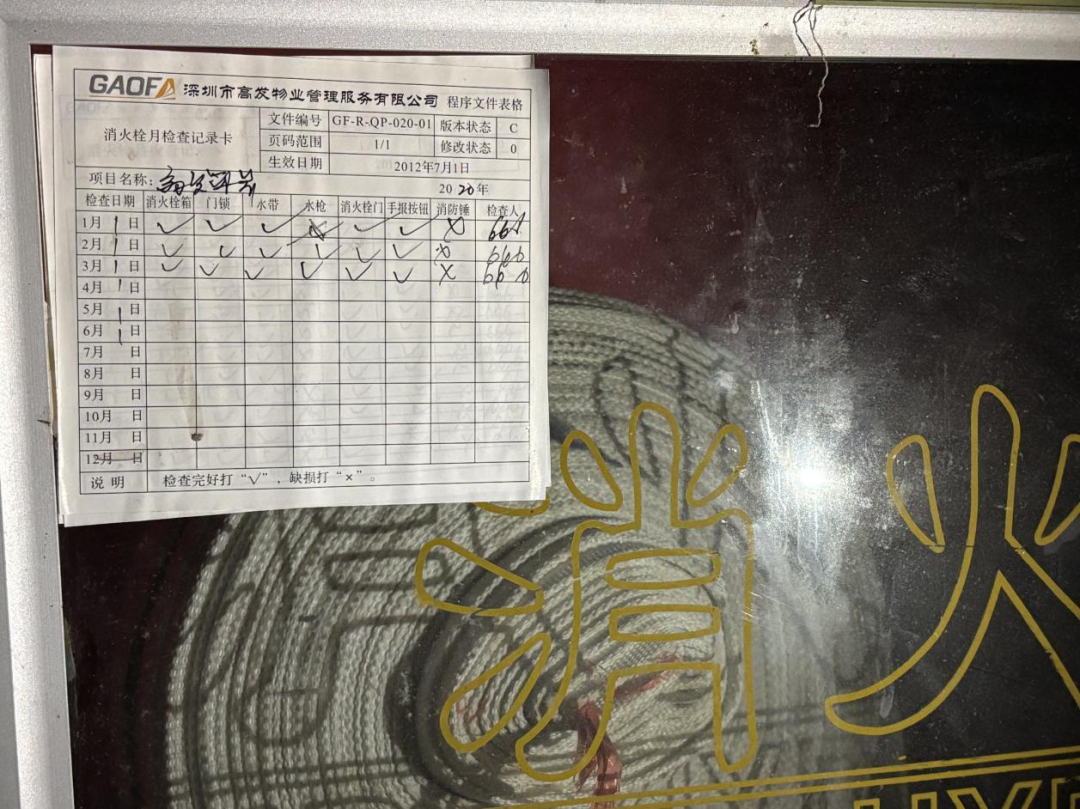 GAOFA 深圳市高发物业管理服务有限公司 程序文件表格
消火栓月检查记录卡
文件编号 GF-R-QP-020-01 版本状态 C
页码范围 1/1 修改状态 0
生效日期 2012年7月1日
项目名称: 2020年
检查日期 消火栓箱 门锁 水带 水枪 消火栓门 手报按钮 消防锤 检查人
1月1日 ✓ ✓ ✓ ✓ ✓ ×
2月1日 ✓ ✓ ✓ ✓ ✓ ✓ ×
3月1日 ✓ ✓ ✓ ✓ ✓ ✓ ×
4月1日
5月1日
6月1日
7月 日
8月 日
9月 日
10月 日
11月 日
12月 日
说明 检查完好打“√”，缺损打“×”。
消火